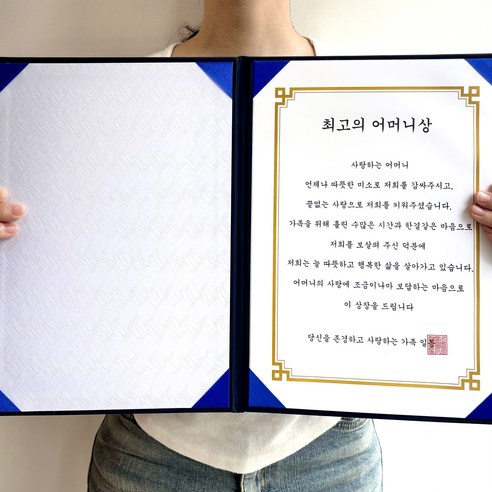 최고의 어머니상
사랑하는 어머니
언제나 따뜻한 미소로 저희를 감싸주시고,
끝없는 사랑으로 저희를 키워주셨습니다.
가족을 위해 흘린 수많은 시간과 한결같은 마음으로
저희를 보살펴 주신 덕분에
저희는 늘 따뜻하고 행복한 삶을 살아가고 있습니다.
어머니의 사랑에 조금이나마 보답하는 마음으로
이 상장을 드립니다
당신을 존경하고 사랑하는 가족 일동